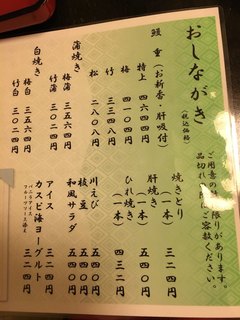 おしながき
(税込価格)
鰻重(お新香・肝吸付)
特上 四六四四円
梅 四一〇四円
竹 三五六四円
松 二八〇八円
蒲焼き
梅蒲 三五六四円
竹蒲 三〇二四円
白焼き
梅白 三五六四円
竹白 三〇二四円
限りがあります。
品切れ
ご容赦ください。
焼きとり(一本) 三二四円
肝焼き(一本) 五四〇円
ひれ焼き(一本) 四三二円
川えび 五四〇円
枝豆 五四〇円
和風サラダ 五四〇円
アイス 三二四円
カスピ海ヨーグルト 三二四円